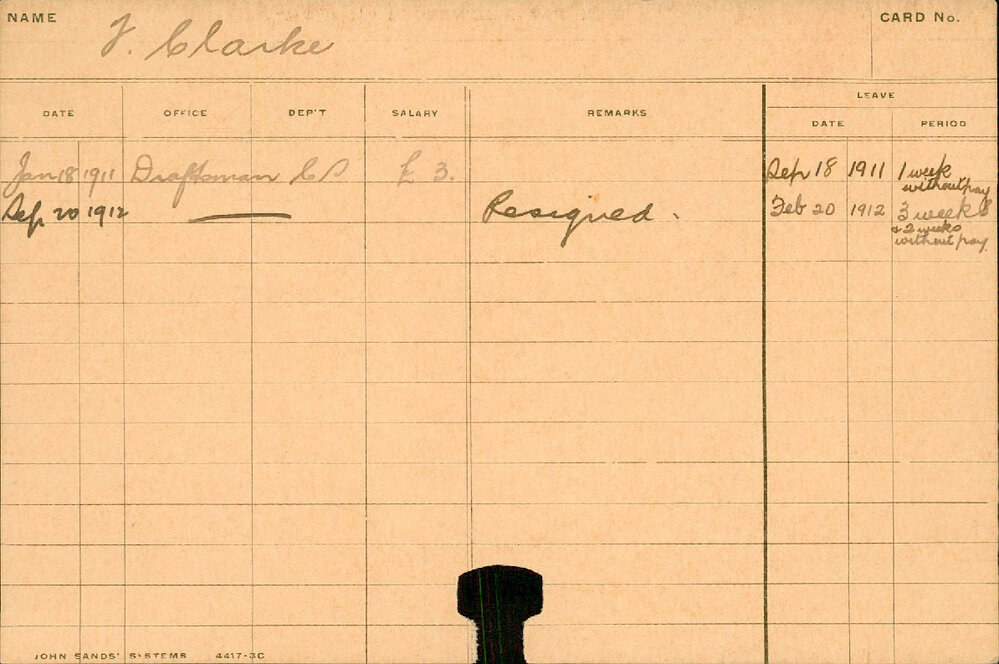 NAME
F. Clarke
CARD No.
LEAVE
DATE OFFICE DEP'T SALARY REMARKS DATE PERIOD
Jan 18 1911 Draftsman £ 3. Sep 18 1911 1 week
without pay
Sep 20 1912 Resigned. Feb 20 1912 3 weeks
& 2 weeks
without pay
JOHN SANDS' SYSTEMS 4417-3C